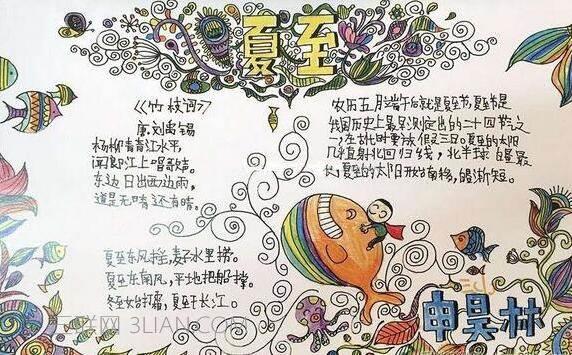 夏至
《竹枝词》
唐 刘禹锡
杨柳青青江水平,
闻郎江上唱歌声。
东边日出西边雨,
道是无晴还有晴。
夏至东风摇,麦子水里捞。
夏至东南风,平地把船撑。
冬至始打霜,夏至干长江。
农历五月端午后就是夏至节,夏至是
我国历史上最早测定出的二十四节气之
一,在古代时要放假三日。夏至的太阳
几直射北回归线,北半球白昼最
长,夏至的太阳开始南移,昼渐短。
申昊林
3LIAN.COM